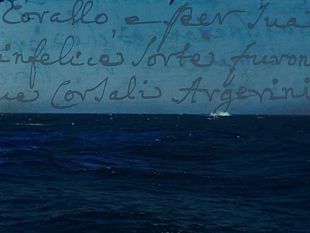 Corallo, e per sua
infelice sorte furon
ue Corsali Argerini